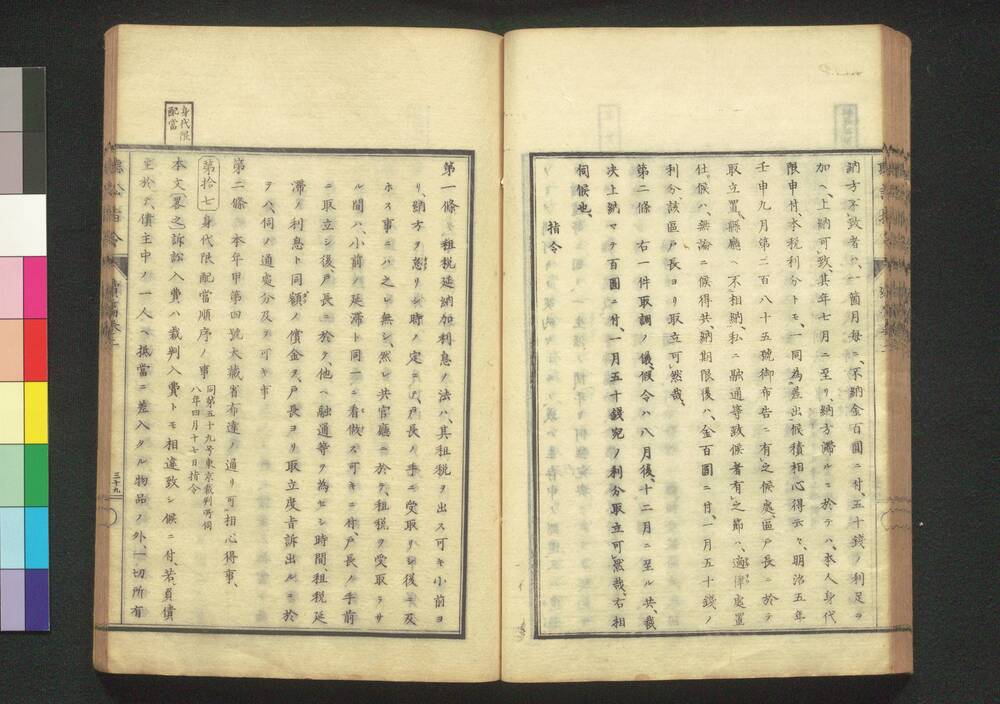 納方不致者ハ、一箇月毎ニ、不納金百圓ニ付、五十錢ノ利足ヲ
加ヘ、上納可致、其年七月ニ至リ、納方滯ルニ於テハ、本人身代
限申付、本税利分トモ、一同為差出候積相心得云々、明治五年
壬申九月第二百八十五號御布告ニ有之候處、區戸長ニ於テ
取立置、縣廳ヘ不相納、私ニ融通等致候者有之節ハ、適律處置
仕候ハ、無論ニ候得共、納期限後ハ、金百圓ニ付、一月五十錢ノ
利分、該區戸長ヨリ取立可然哉、
第二條 右一件取調ノ儀、假令ハ八月後、十二月ニ至ル共、哉
次上納マテ百圓ニ付、一月五十錢宛ノ利分取立可然哉、右相
伺候也、
指令
身代限
配當
第一條 租税延納加利息ノ法ハ、其租税ヲ出ス可キ小前ヨ
リ、納方ヲ怠リシ時ノ定ニテ、戸長ノ手ニ受取リシ後ニ及
ホス事ニハ之レ無シ、然レ共官廳ニ於テ、租税ヲ受取ラサ
ル間ハ、小前ノ延滯ト同一ニ看做ス可キニ付、戸長ノ手前
ニ取立シ後、戸長ニ於テ、他ヘ融通等ヲ為セシ時間、租税延
滯ノ利息ト同額ノ償金ヲ、戸長ヨリ取立度旨訴出ルニ於
テハ、伺ノ通處分及フ可キ事
第二條 本年甲第四號大藏省布達ノ通リ可相心得事、
第拾七 身代限配當順序ノ事 同第五十九号東京裁判所伺
八年四月十七日指令
本文畧之訴訟入費ハ裁判入費ト モ相違致シ候ニ付、若負債
主於テ、債主中ノ一人ヘ抵當ニ差入タル物品ノ外、一切所有
三十九